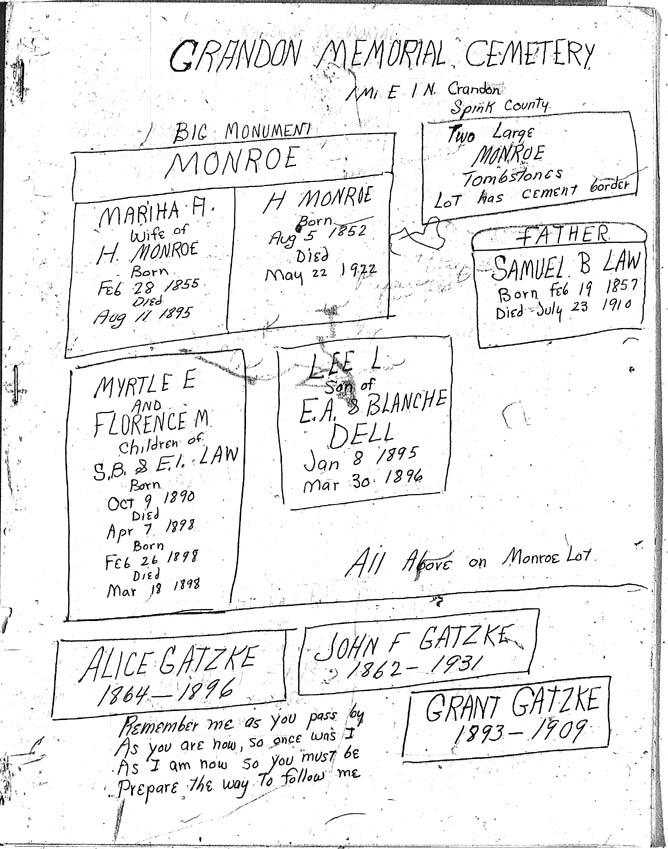 CRANDON MEMORIAL CEMETERY
1 Mi E 1 N. Crandon
Spink County
BIG MONUMENT
MONROE
MARTHA A.
Wife of
H. MONROE
Born
Feb 28 1855
Died
Aug 11 1895
H MONROE
Born
Aug 5 1852
Died
May 22 1922
Two Large
MONROE
Tombstones
Lot has cement border
FATHER
SAMUEL B LAW
Born Feb 19 1857
Died July 23 1910
MYRTLE E
AND
FLORENCE M.
Children of
S.B. & E.I. LAW
Born
Oct 9 1890
Died
Apr 7 1898
Born
Feb 26 1898
Died
Mar 18 1898
LEE L
Son of
E.A. & BLANCHE
DELL
Jan 8 1895
Mar 30 1896
All Above on Monroe Lot.
ALICE GATZKE
1864 - 1896
Remember me as you pass by
As you are now, so once was I
As I am now so you must be
Prepare the way to follow me
JOHN F GATZKE
1862 - 1931
GRANT GATZKE
1893 - 1909